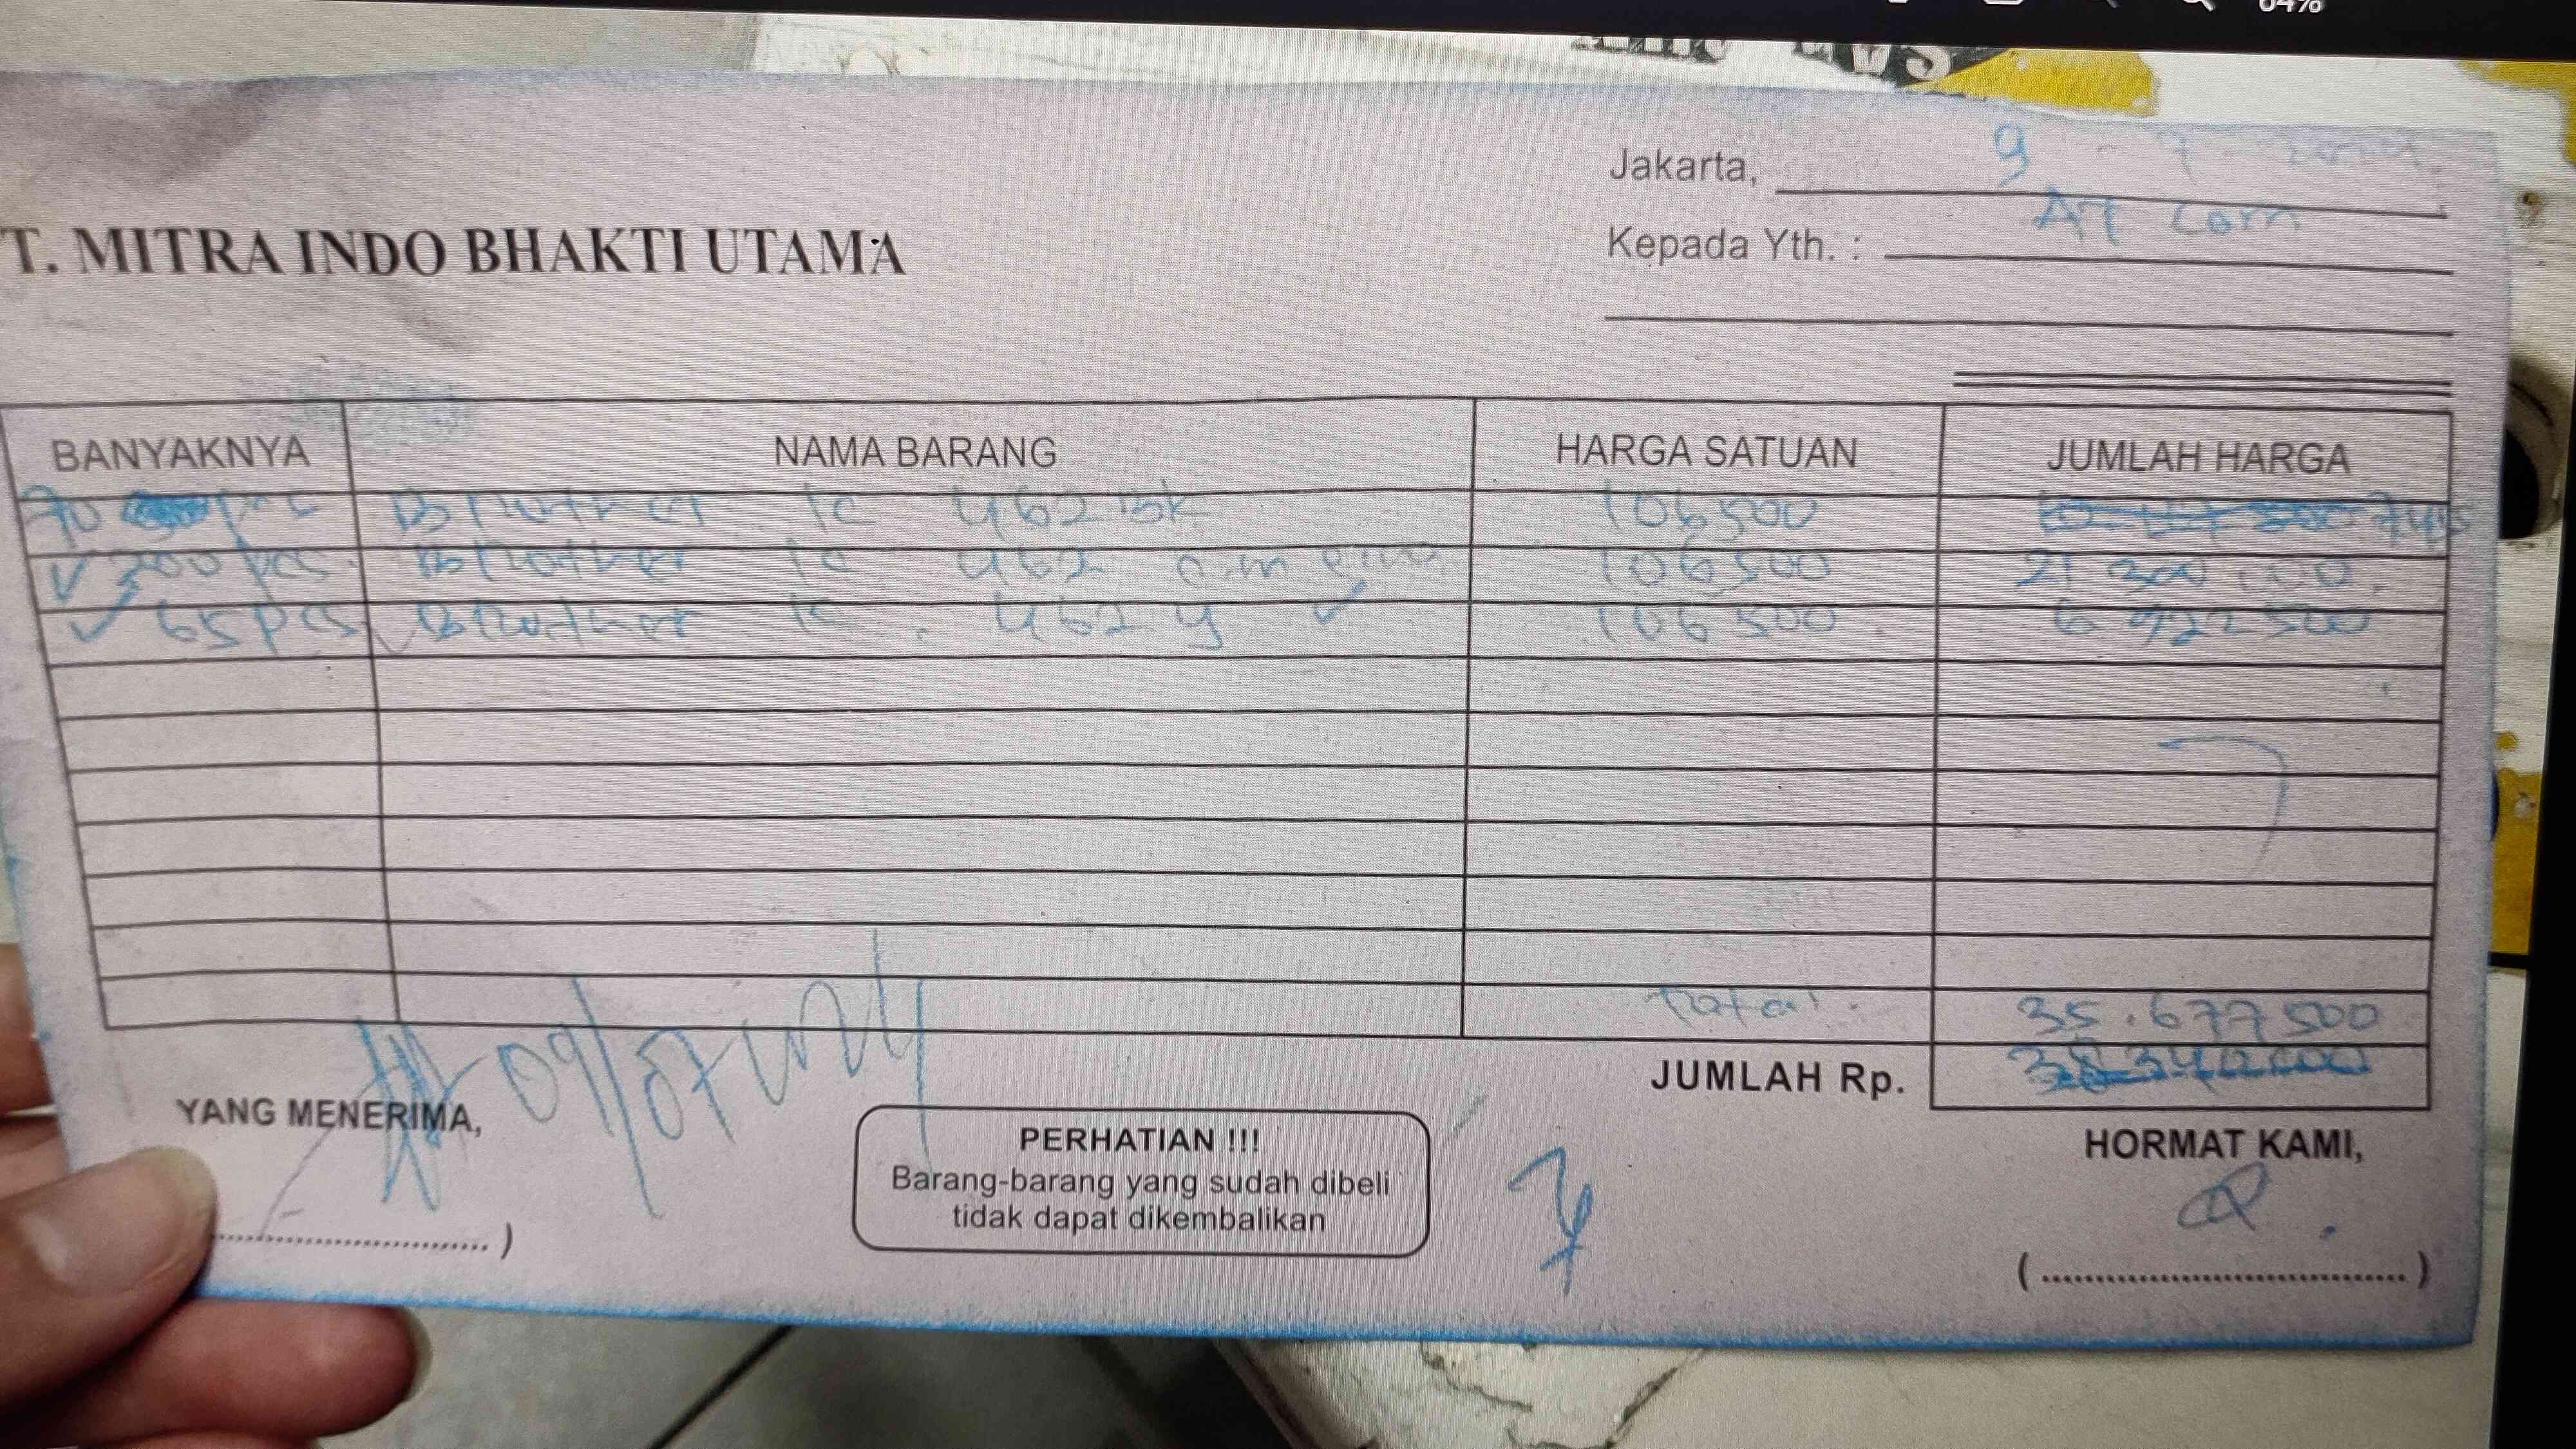 64%
Jakarta, 9 - 7 - 2024
T. MITRA INDO BHAKTI UTAMA
Kepada Yth. : AT Com
BANYAKNYA NAMA BARANG HARGA SATUAN JUMLAH HARGA
70 pcs Brother lc 462 BK 106500
200 pcs Brother lc 462 106500 21 300 000
65 pcs Brother lc 462 y 106 500 6 922 500
total 35.677 500
JUMLAH Rp.
09/07
YANG MENERIMA,
PERHATIAN !!!
Barang-barang yang sudah dibeli
tidak dapat dikembalikan
HORMAT KAMI,